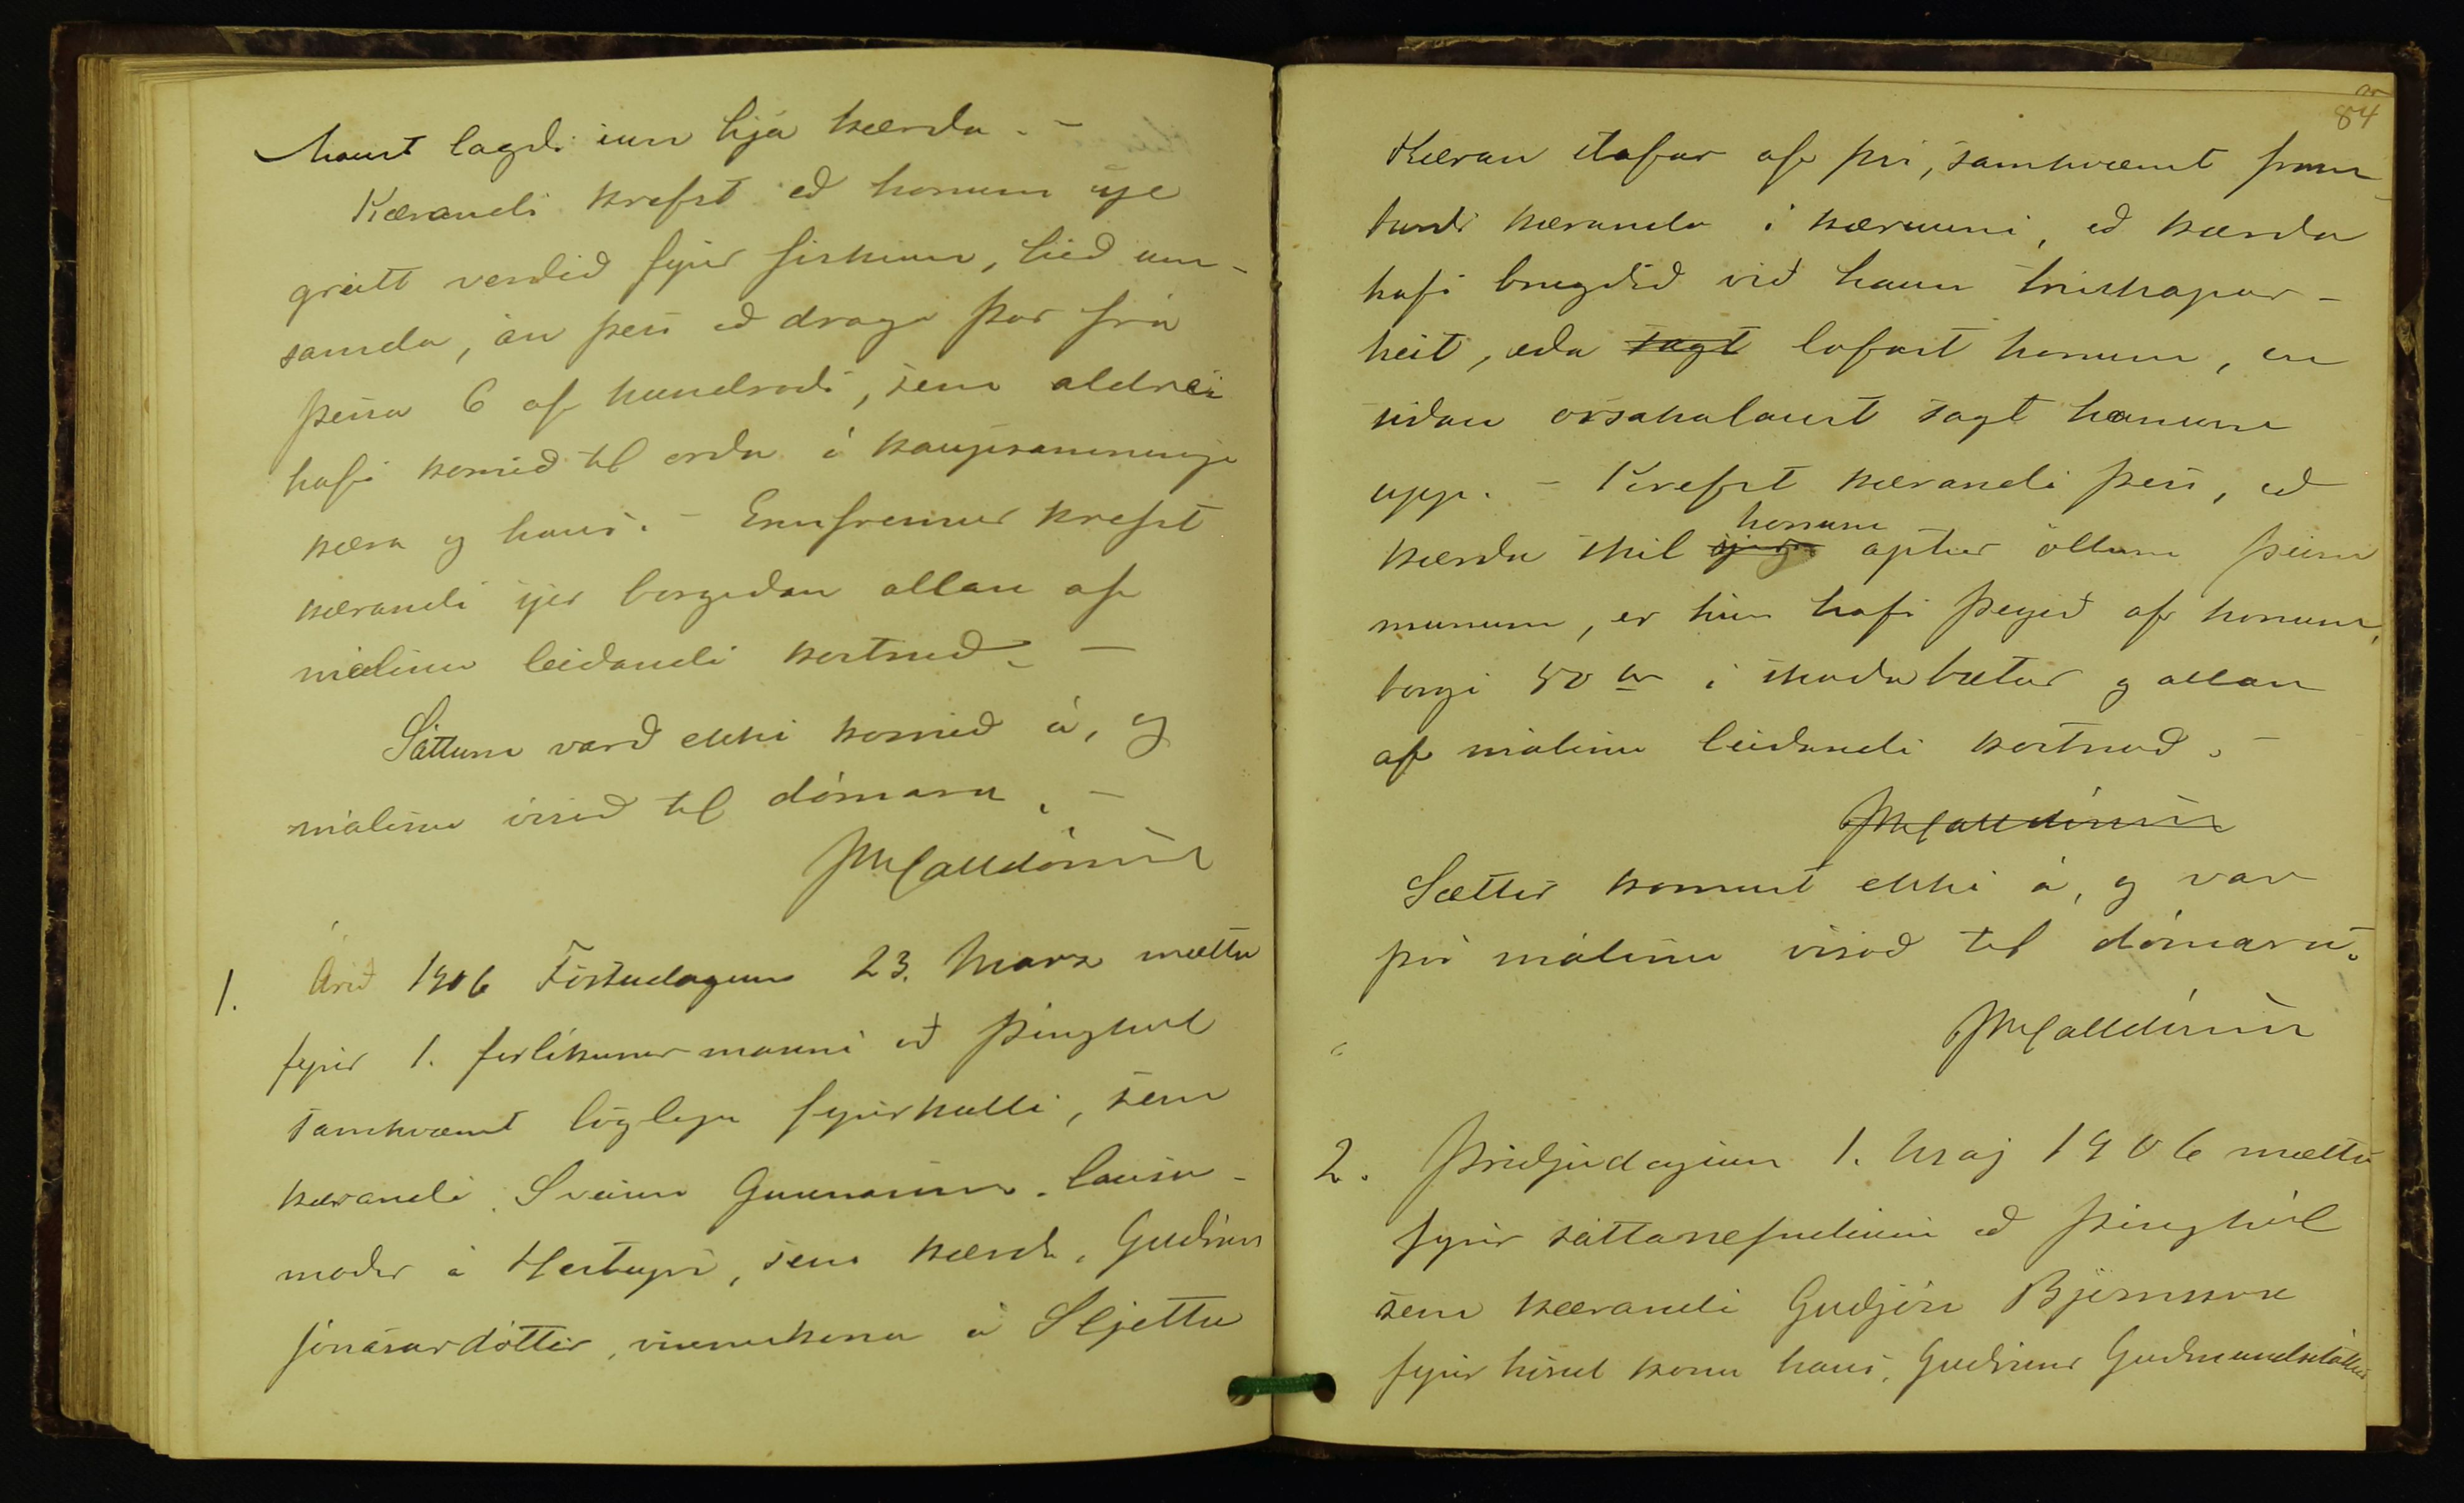 haust lagði inn hjá kærða. -
Kærandi krefst að honum sje
greitt verðið fyrir fiskinn, hið um-
samda, án þess að draga þar frá
þessa 6 af hundraði, sem aldrei
hafi komið til orða í kaupsamningi
kæra og hans. - Ennfremur krefst
kærandi sjer borgaðan allan af
málinu leiðandi kostnað. -
Sáttum varð ekki komið á, og
málinu vísað til dómara. -
1. Árið 1906 Föstudaginn 23. Marz mættu
fyrir 1. forlíkunarmanni að Þinghól
samkvæmt löglegu fyrirkalli, sem
kærandi Sveinn Gunnarsson lausa-
maður á Hesteyri, sem kærða, Guðrún
Jónasardóttir, vinnukona á Sljettu
84
Kæran stafar af því, samkvæmt fram-
burði kæranda í kærunni, að kærða
hafi brugðið við hann trúskapar-
heit, eða sagt lofast honum, en
síðan orsakalaust sagt honum
upp. - Krefst kærandi þess, að
honum
kærða skil aptur öllum þeim
munum, er hún hafi þegið af honum,
borgi 50 kr í skaðabætur og allan
af málinu leiðandi kostnað. -
Sættir komust ekki á, og var
því málinu vísað til dómara.
2. Þriðjudaginn 1. Maj 1906 mættu
fyrir sáttanefndinni að Þinghól
sem kærandi Guðjón Björnsson
fyrir hönd konu hans, Guðrúnar Guðmundsdóttur